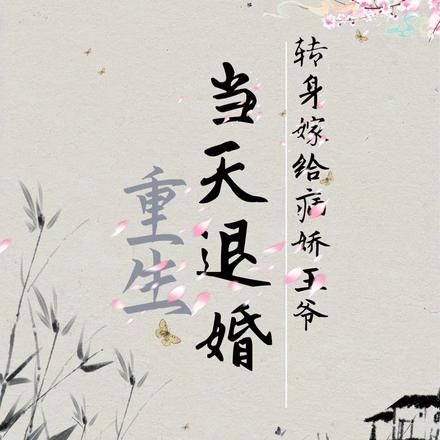 重生
当天退婚
转身嫁给病娇王爷